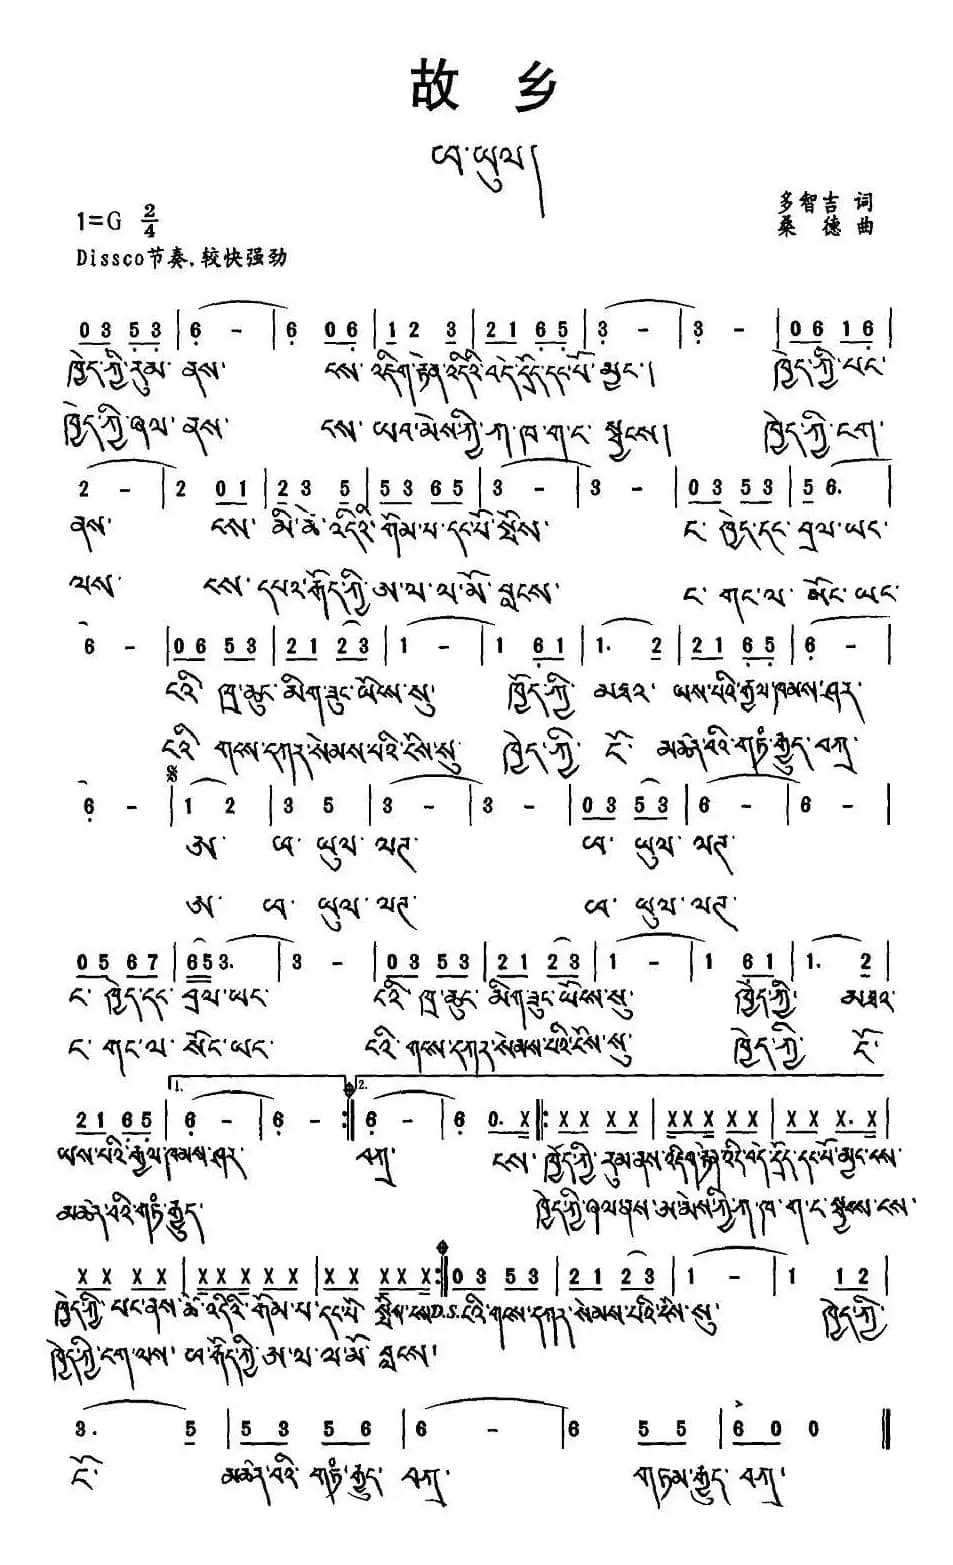 故 乡
ཕ་ཡུལ།
1=G 2/4
多智吉 词
桑 德 曲
Dissco节奏,较快强劲
0 3 5 3 | 6 - | 6 0 6 | 1 2 3 | 2 1 6 5 | 3 - | 3 - | 0 6 1 6 |
ཁྱེད་ཀྱི་རུམ་ ནས་ ངས་ འདིག་རྟེན་འདིའི་བདེ་དྲོད་དང་པོ་མྱང་། ཁྱེད་ཀྱི་པང་
ཁྱེད་ཀྱི་ཞལ་ ནས་ ངས་ ཡབ་མེས་ཀྱི་ཀ་ཁ་ག་ང་ སྦྱངས། ཁྱེད་ཀྱི་ངག་
2 - | 2 0 1 | 2 3 5 | 5 3 6 5 | 3 - | 3 - | 0 3 5 3 | 5 6. |
ནས་ ངས་ མི་ཚེ་འདིའི་གོམ་པ་དང་པོ་སྤོས་ ང་ ཁྱེད་དང་ བྲལ་ཡང་
ལས་ ངས་ དཔའ་རྒོད་ཀྱི་ཨ་ལ་ལ་མོ་བླངས་ ང་ གང་ལ་ སོང་ཡང་
6 - | 0 6 5 3 | 2 1 2 3 | 1 - | 1 6 1 | 1. 2 | 2 1 6 5 | 6 - |
ངའི་ ཁྲ་ཆུང་ མིག་ཟུང་ ཡོངས་སུ་ ཁྱོད་ཀྱི་ མཐའ་ ཡས་པའི་རྒྱལ་ཁམས་ཤར་
ངའི་ གངས་དཀར་སེམས་པའི་ངོས་སུ་ ཁྱེད་ཀྱི་ ངོ་ མཚར་བའི་གཏམ་རྒྱུད་བཀྲ་
6 - | 1 2 | 3 5 | 3 - | 3 - | 0 3 5 3 | 6 - | 6 - |
ཨ་ ཕ་ ཡུལ་ ལད་ ཕ་ ཡུལ་ ལད་
ཨ་ ཕ་ ཡུལ་ ལད་ ཕ་ ཡུལ་ ལད་
0 5 6 7 | 6 5 3. | 3 - | 0 3 5 3 | 2 1 2 3 | 1 - | 1 6 1 | 1. 2 |
ང་ ཁྱེད་དང་ བྲལ་ཡང་ ངའི་ ཁྲ་ཆུང་ མིག་ཟུང་ཡོངས་སུ་ ཁྱོད་ཀྱི་ མཐའ་
ང་ གང་ལ་ སོང་ཡང་ ངའི་ གངས་དཀར་སེམས་པའི་ངོས་སུ་ ཁྱེད་ཀྱི་ ངོ་
1. 2.
2 1 6 5 | 6 - | 6 - :| 6 - | 6 0. X |: X X X X | X X X X X | X X X. X |
ཡས་པའི་རྒྱལ་ཁམས་ཤར་ བཀྲ་ ངས་ ཁྱོད་ཀྱི་ རུམ་ནས་འདིག་རྟེན་འདིའི་བདེ་དྲོད་དང་པོ་མྱང་ངས་
མཚར་བའི་གཏམ་རྒྱུད་ ཁྱེད་ཀྱི་ཞལ་ནས་ཨ་མེས་ཀྱི་ཀ་ཁ་ག་ང་སྦྱངས་ངས་
X X X X | X X X X X | X X X X X :| 0 3 5 3 | 2 1 2 3 | 1 - | 1 1 2 |
ཁྱེད་ཀྱི་ པང་ནས་ཚེ་འདིའི་གོམ་པ་དང་པོ་ སྤོས་ངས་D.S.ངའི་གངས་དཀར་སེམས་པའི་ངོས་སུ་ ཁྱེད་ཀྱི་
ཁྱེད་ཀྱི་ངག་ལས་ ཕ་རྒོད་ཀྱི་ཨ་ལ་ལ་མོ་ བླངས་
3. 5 | 5 3 5 6 | 6 - | 6 5 5 | 6 0 0 ‖
ངོ་ མཚར་བའི་ གཏམ་རྒྱུད་ བཀྲ་ གཏམ་རྒྱུད་ བཀྲ་